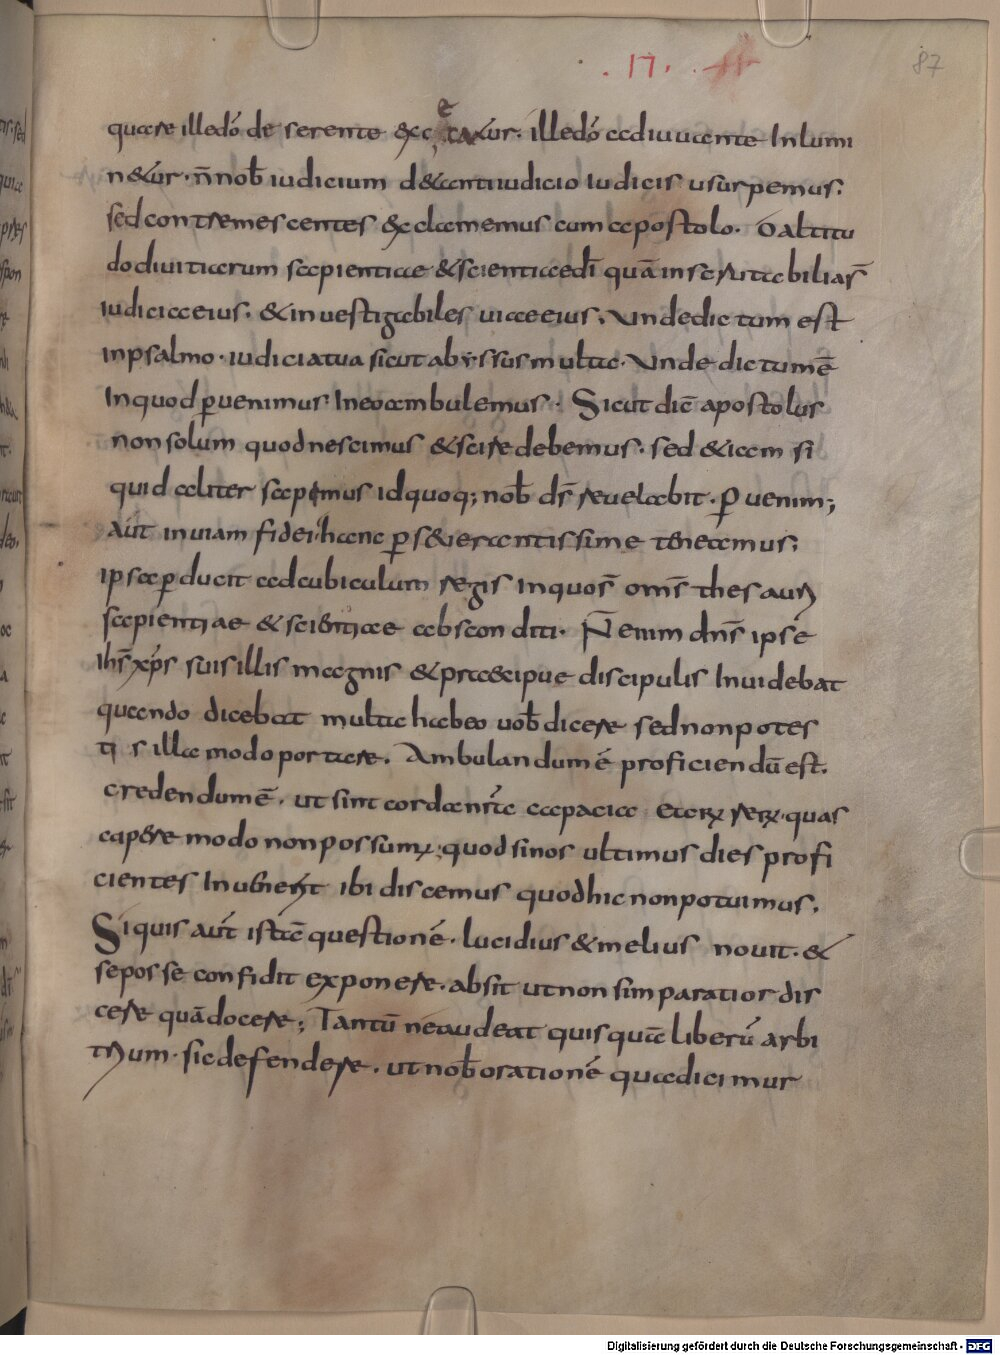 . 17 .
87
quare ille dō deserente excętaxur. ille dō adiuuante Inlumi
n&ur. n̄ nob̄ iudicium d& anti iudicio iudicis usurpemus;
sed contremescentes &xclamemus cum apostolo. O altitu
do diuitiarum sapientiae & scientiae dī quā inscrutabilia s̄
iudicia eius. & inuestigabiles uiae eius, Unde dictum est
in psalmo. iudicia tua sicut abyssus multa. Unde dictum ē
In quod ꝑuenimus In eo ambulemus. Sicut dic̄ apostolus
non solum quod nescimus & scire debemus. sed & iam si
quid aliter sapimus id quoq; nob̄ ds̄ reuelabit. ꝑuenim;
aūt in uiam fidei hanc ꝑseuerantissime teneamus;
ipsa ꝑducit ad cubiculum regis In quo s̄ om̄s thesauri
sapientiae & scientiae absconditi. N̄ enim dn̄s ipse
ih̄s xp̄s suis illis magnis & praecipue discipulis Inuidebat
quando dicebat multa habeo uob̄ dicere sed non potes
tis illa modo portare. Ambulandum ē proficiendū est.
credendum ē. ut sint corda nr̄a capacia earꝝ rerꝝ. quas
capere modo non possumꝰ; quod si nos ultimus dies profi
cientes Inuenerit ibi discemus quod hic non potuimus.
Siquis aūt istā questionē. lucidius & melius nouit. &
se posse confidit exponere. absit ut non sim paratior dis
cere quā docere; Tantū ne audeat quisquā liberū arbi
trium. sic defendere. ut nob̄ orationē qua dicimur
Digitalisierung gefördert durch die Deutsche Forschungsgemeinschaft - DFG